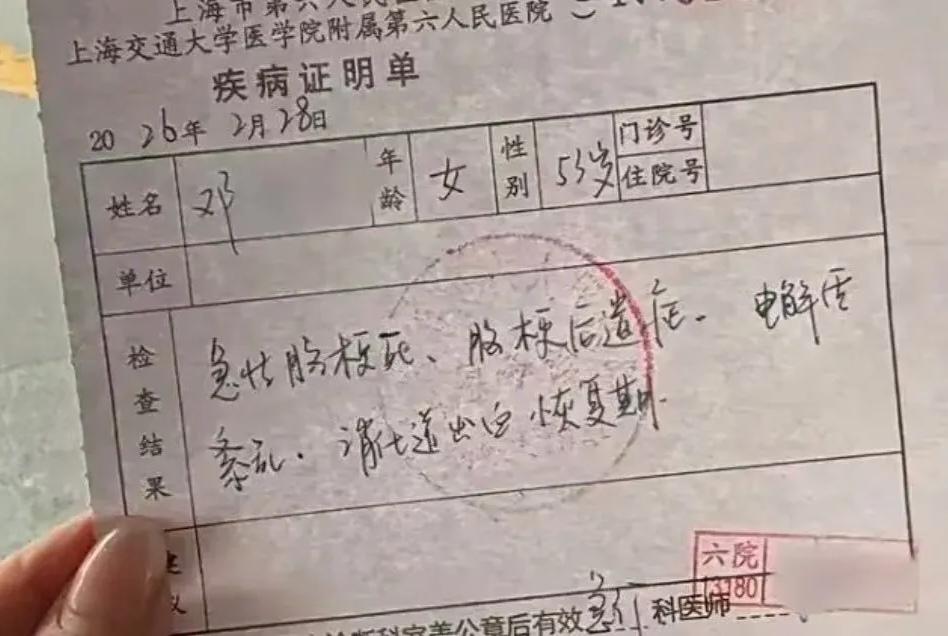 上海市第六人民医
上海交通大学医学院附属第六人民医院
疾病证明单
2026年 2月28日
姓名 邓 年龄 女 性别 53岁 门诊号
住院号
单位
检查结果 急性脑梗死、脑梗后遗症. 电解质
紊乱. 消化道出血 恢复期.
六院
13180
科医师